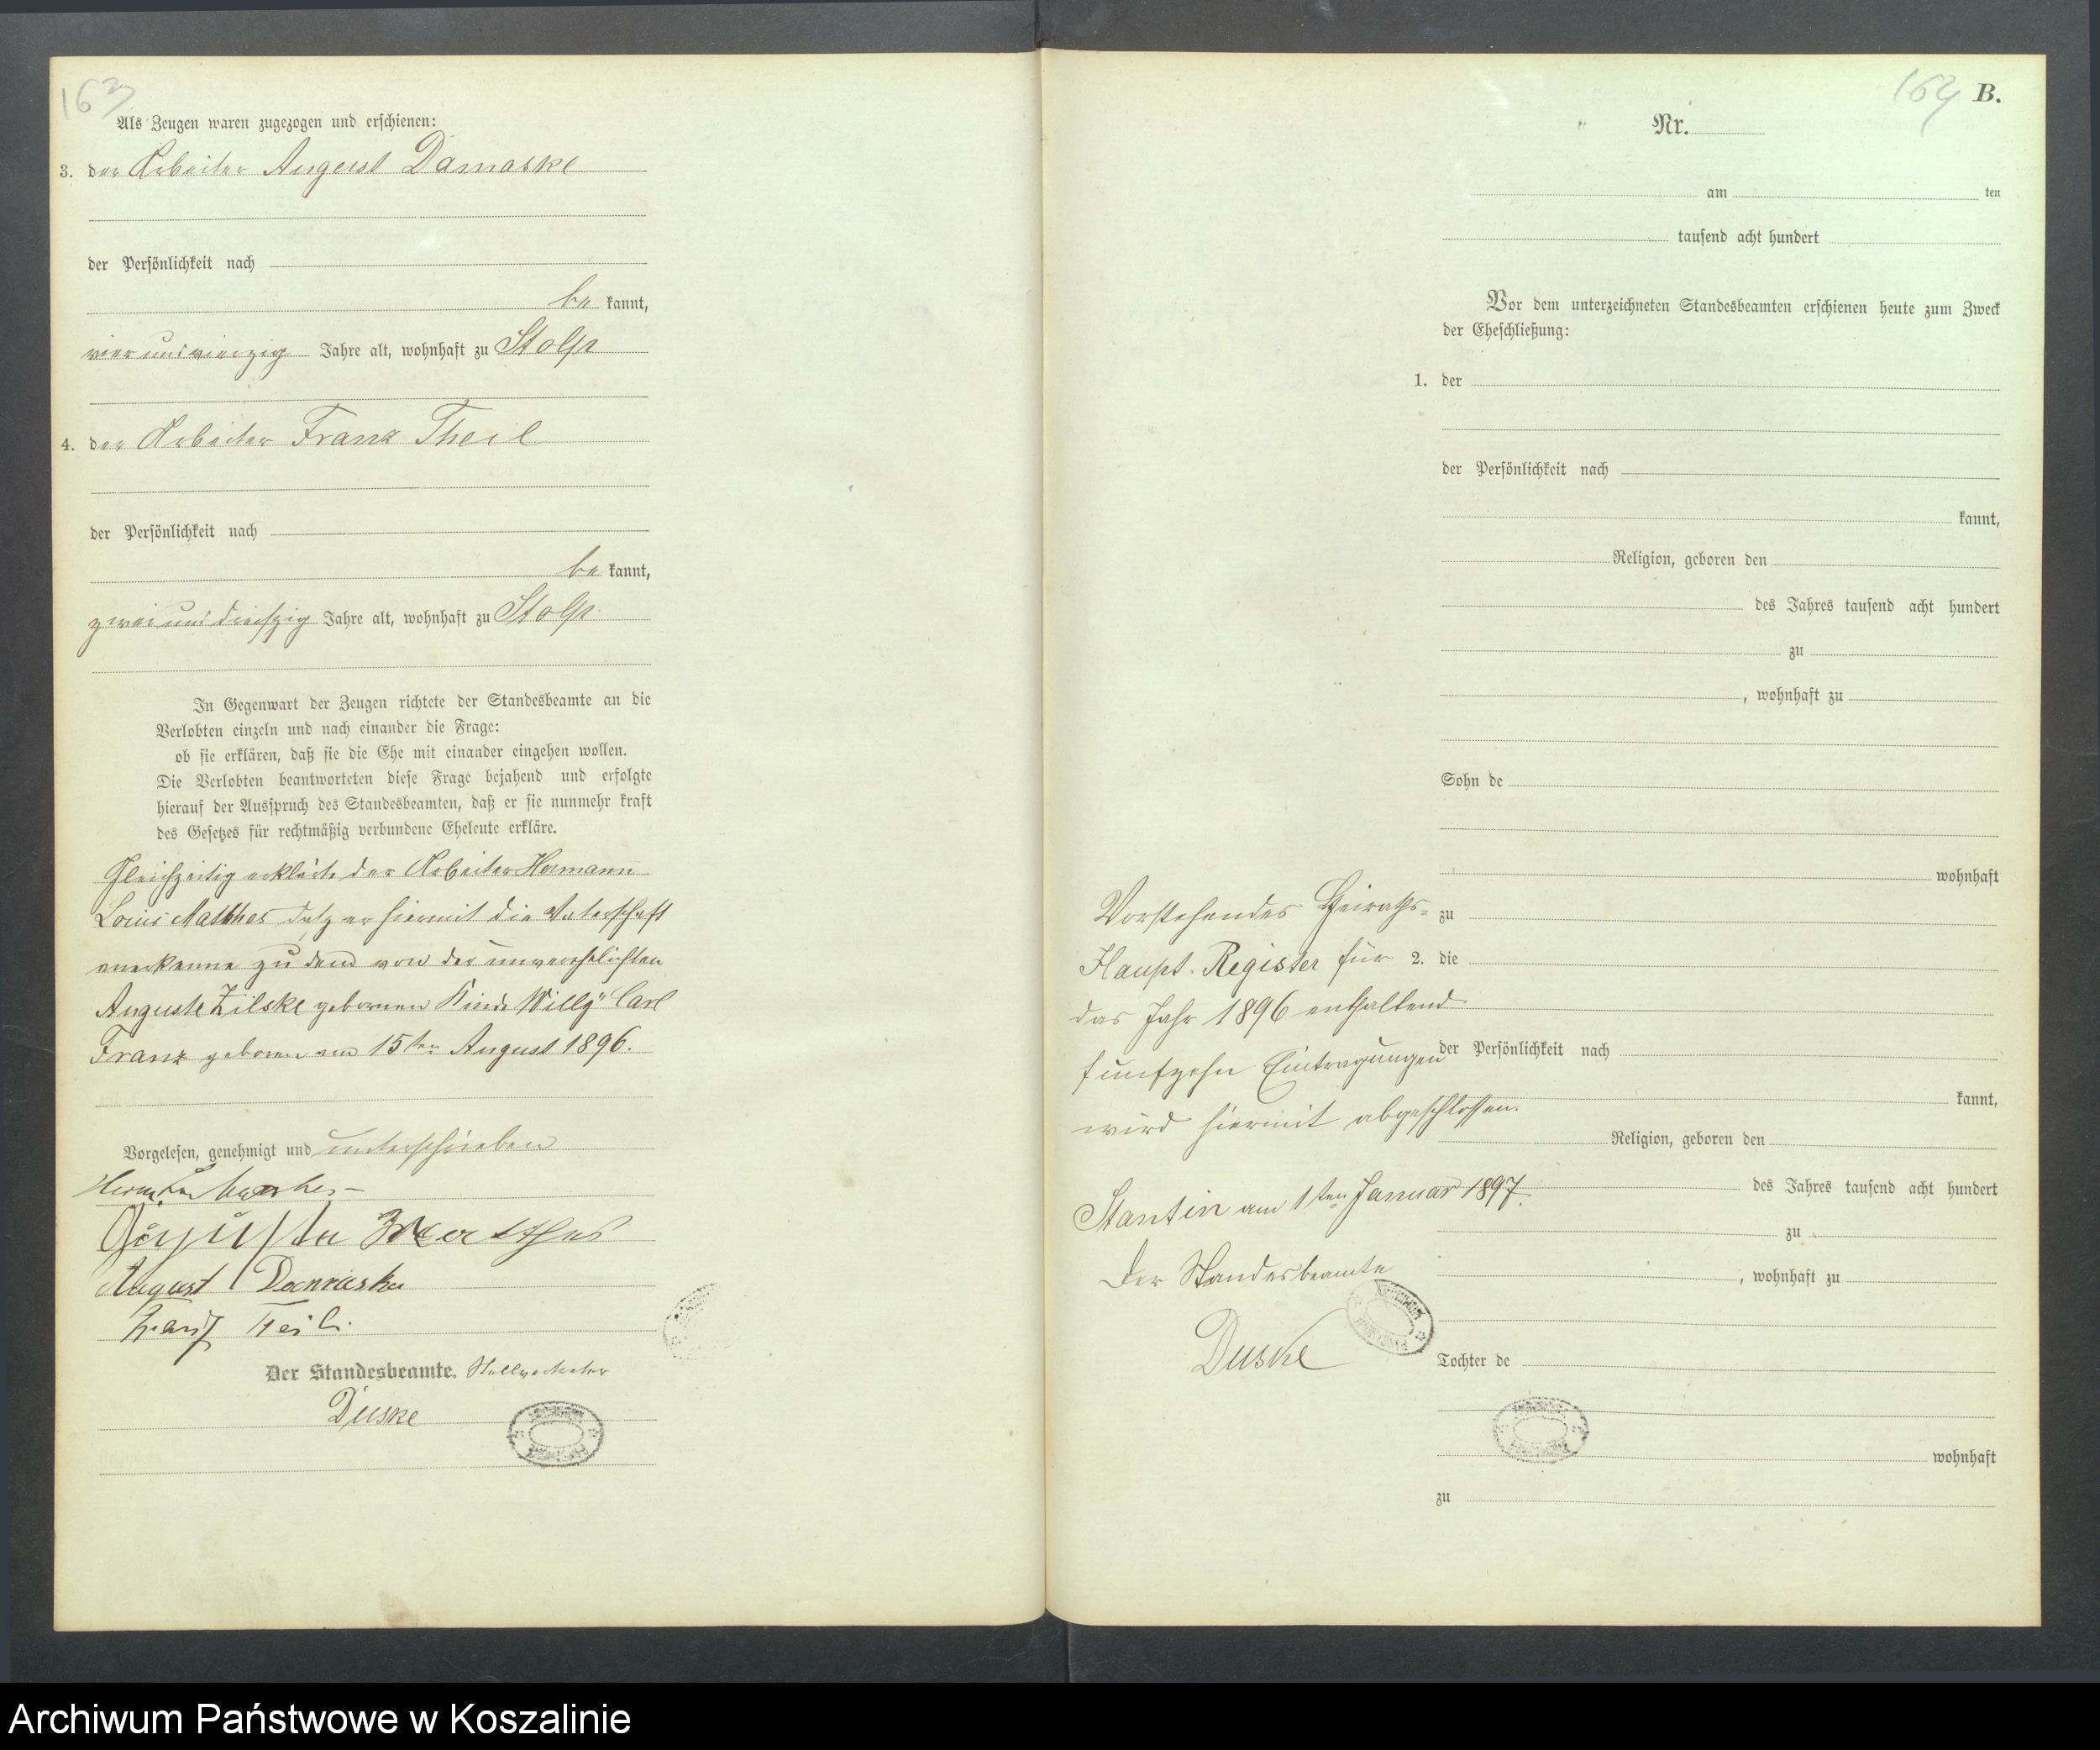 163
Als Zeugen waren zugezogen und erschienen:
3. der Arbeiter August Damaske
der Persönlichkeit nach
be kannt,
vierundvierzig Jahre alt, wohnhaft zu Stolp
4. der Arbeiter Franz Theil
der Persönlichkeit nach
be kannt,
zweiunddreißig Jahre alt, wohnhaft zu Stolp
In Gegenwart der Zeugen richtete der Standesbeamte an die
Verlobten einzeln und nach einander die Frage:
ob sie erklären, daß sie die Ehe mit einander eingehen wollen.
Die Verlobten beantworteten diese Frage bejahend und erfolgte
hierauf der Ausspruch des Standesbeamten, daß er sie nunmehr kraft
des Gesetzes für rechtmäßig verbundene Eheleute erkläre.
Gleichzeitig erklärte der Arbeiter Hermann
Louis Matthes daß er hiermit die Vaterschaft
anerkenne zu dem von der unverehelichten
Auguste Zilske gebornen Kinde Willy Carl
Franz geboren am 15ten August 1896.
Vorgelesen, genehmigt und unterschrieben
Auguste Matthes
August Damaske
Franz Teil
Der Standesbeamte. Stellvertreter
Duske
164 B.
Nr.
am ten
tausend acht hundert
Vor dem unterzeichneten Standesbeamten erschienen heute zum Zweck
der Eheschließung:
1. der
der Persönlichkeit nach
kannt,
Religion, geboren den
des Jahres tausend acht hundert
zu
, wohnhaft zu
Sohn de
wohnhaft
zu
2. die
der Persönlichkeit nach
kannt,
Religion, geboren den
des Jahres tausend acht hundert
zu
, wohnhaft zu
Tochter de
wohnhaft
zu
Vorstehendes Heiraths-
Haupt-Register für
das Jahr 1896 enthaltend
funfzehn Eintragungen
wird hiermit abgeschlossen.
Stantin am 1ten Januar 1897.
Der Standesbeamte
Duske
Archiwum Państwowe w Koszalinie